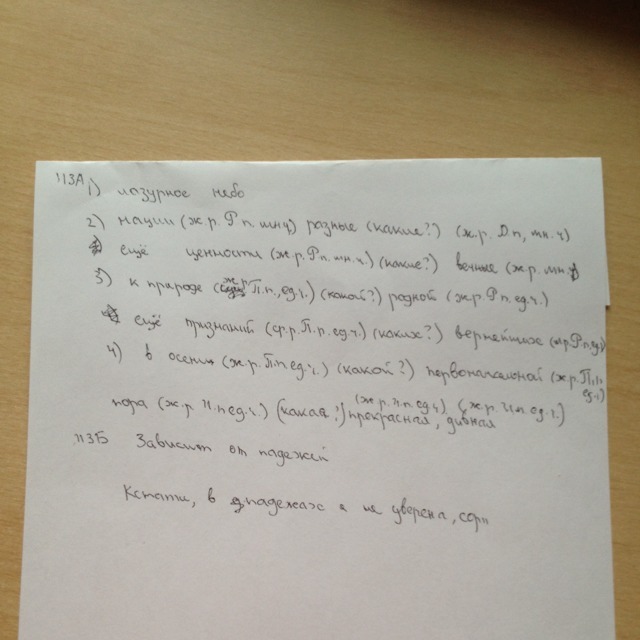 113А 1) лазурное небо
2) нации (ж.р. Р.п. мн.ч) разные (какие?) (ж.р. Д.п, мн.ч)
ещё ценности (ж.р. Р.п. мн.ч.) (какие?) вечные (ж.р. мн.
3) к природе (ж.р. П.п., ед.ч.) (какой?) родной (ж.р. Р.п. ед.ч.)
ещё признаний (ср.р. П.п. ед.ч.) (каких?) вернейших
4) в осени (ж.р. П.п. ед.ч.) (какой?) первоначальной (ж.р. П.п.
ед.ч)
(ж.р. И.п. ед.ч) (ж.р. И.п. ед.ч.)
пора (ж.р. И.п. ед.ч.) (какая?) прекрасная, дивная
113Б Зависит от падежей
Кстати, в падежах я не уверена, сорі